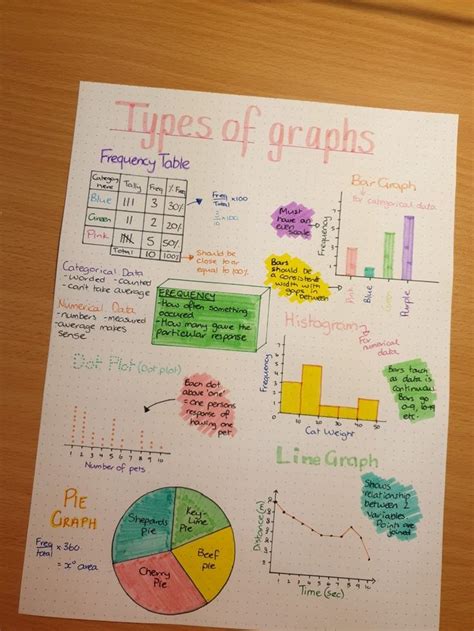 Types of graphs
Frequency Table
Category name Tally Freq % Freq
Blue 3 30%
Green 2 20%
Pink 5 50%
Total 10 100%
Freq
Total × 100
3
10 × 100
Should be
close to or
equal to 100%
Categorical Data
- worded - counted
- can't take average
Numerical Data
- numbers - measured
- average makes
sense
FREQUENCY
- How often something
occured
- How many gave the
particular response
Bar Graph
for categorical data
Must
have an
even
scale
Bars
should be
a consistent
width with
gaps in
between
Frequency
Pink
Blue
Green
Purple
Histogram
for
numerical
data
Frequency
5
4
3
2
1
10 20 30 40 50
Cat Weight
Bars touch
as data is
continuous
Bars go
0-9, 10-19
etc.
Dot Plot (Dot plot)
1 2 3 4 5 6 7 8 9 10
Number of pets
Each dot
above 'one'
= one persons
response of
having one
pet
Line Graph
Distance (m)
1 2 3 4 5 6 7 8 9 10
Time (sec)
Shows
relationship
between 2
variables
Points are
joined
PIE
GRAPH
Freq
Total × 360
= x° area
Shepards
pie
Key-
Lime
Pie
Beef
pie
Cherry
Pie